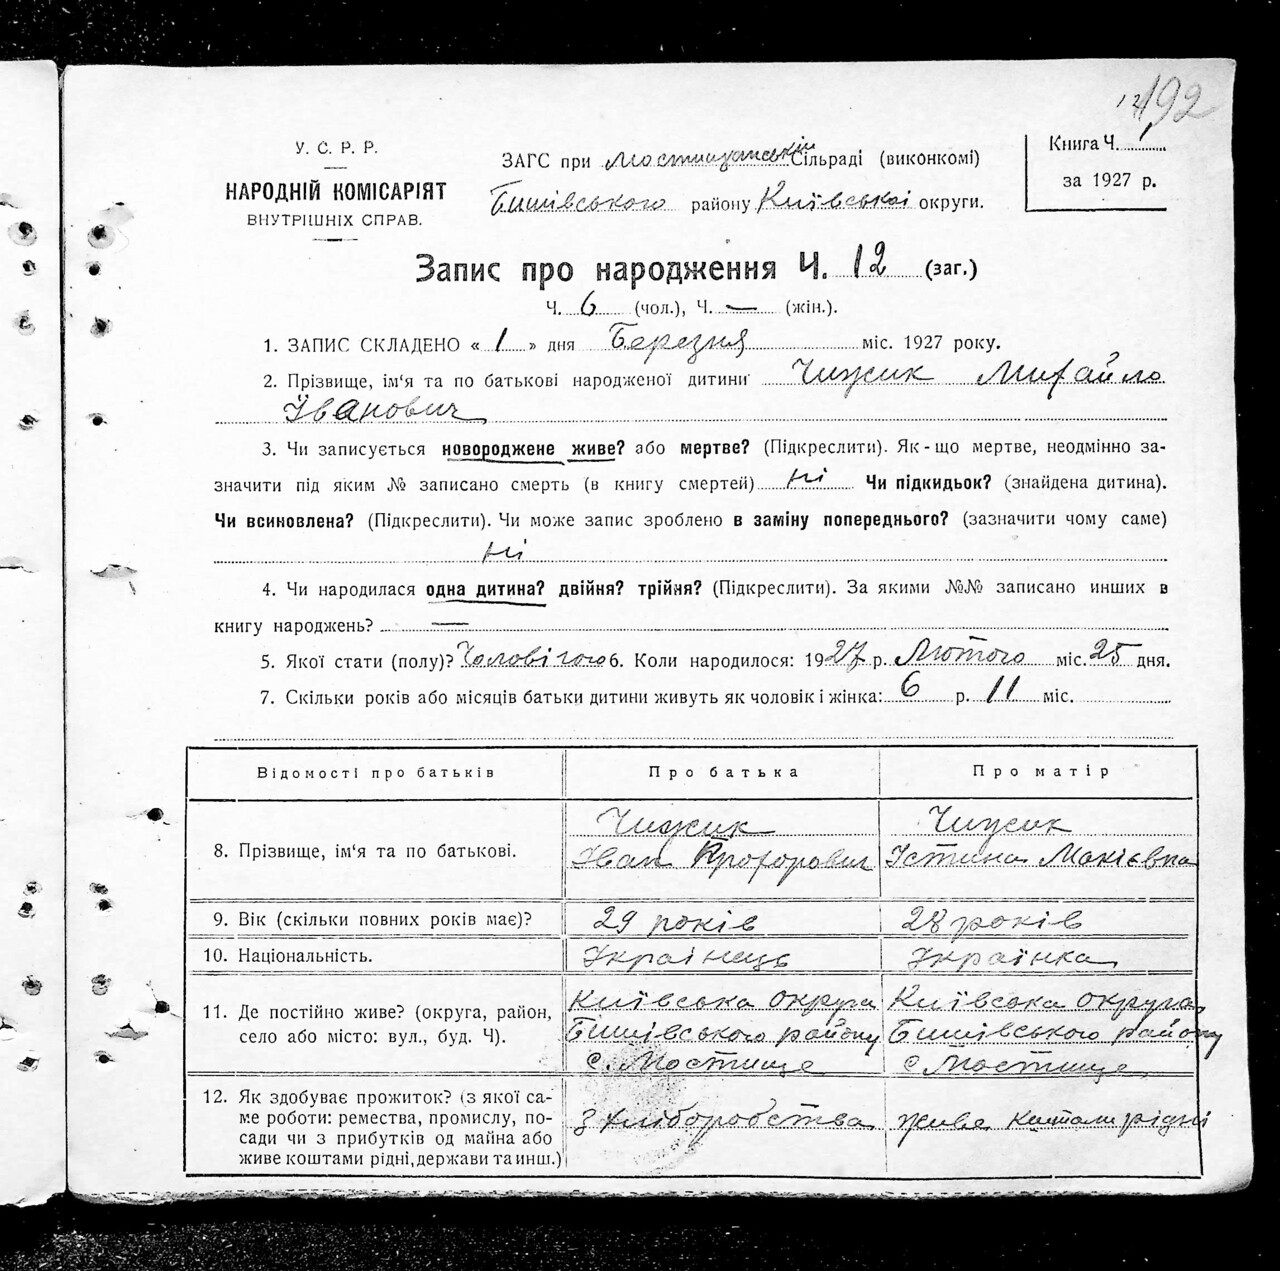 12 192
У. С. Р. Р.
НАРОДНІЙ КОМІСАРІЯТ
ВНУТРІШНІХ СПРАВ.
ЗАГС при Мостищанській Сільраді (виконкомі)
Бишівського району Київської округи.
Книга Ч. 1
за 1927 р.
Запис про народження Ч. 12 (заг.)
Ч. 6 (чол.), Ч. — (жін.).
1. ЗАПИС СКЛАДЕНО « 1 » дня Березня міс. 1927 року.
2. Прізвище, ім'я та по батькові народженої дитини Чижик Михайло
Іванович
3. Чи записується новороджене живе? або мертве? (Підкреслити). Як-що мертве, неодмінно за-
значити під яким № записано смерть (в книгу смертей) ні Чи підкидьок? (знайдена дитина).
Чи всиновлена? (Підкреслити). Чи може запис зроблено в заміну попереднього? (зазначити чому саме)
ні
4. Чи народилася одна дитина? двійня? трійня? (Підкреслити). За якими №№ записано инших в
книгу народжень? —
5. Якої стати (полу)? Чоловічою 6. Коли народилося: 1927 р. Лютого міс. 25 дня.
7. Скільки років або місяців батьки дитини живуть як чоловік і жінка: 6 р. 11 міс.
Відомості про батьків Про батька Про матір
8. Прізвище, ім'я та по батькові. Чижик Чижик
Іван Прохорович Устина Мокієвна
9. Вік (скільки повних років має)? 29 років 28 років
10. Національність. Українець Українка
11. Де постійно живе? (округа, район, Київська округа Київська округа
село або місто: вул., буд. Ч). Бишівського району Бишівського району
с. Мостище с. Мостище
12. Як здобуває прожиток? (з якої са-
ме роботи: ремества, промислу, по- з хліборобства живе коштами рідні
сади чи з прибутків од майна або
живе коштами рідні, держави та инш.)